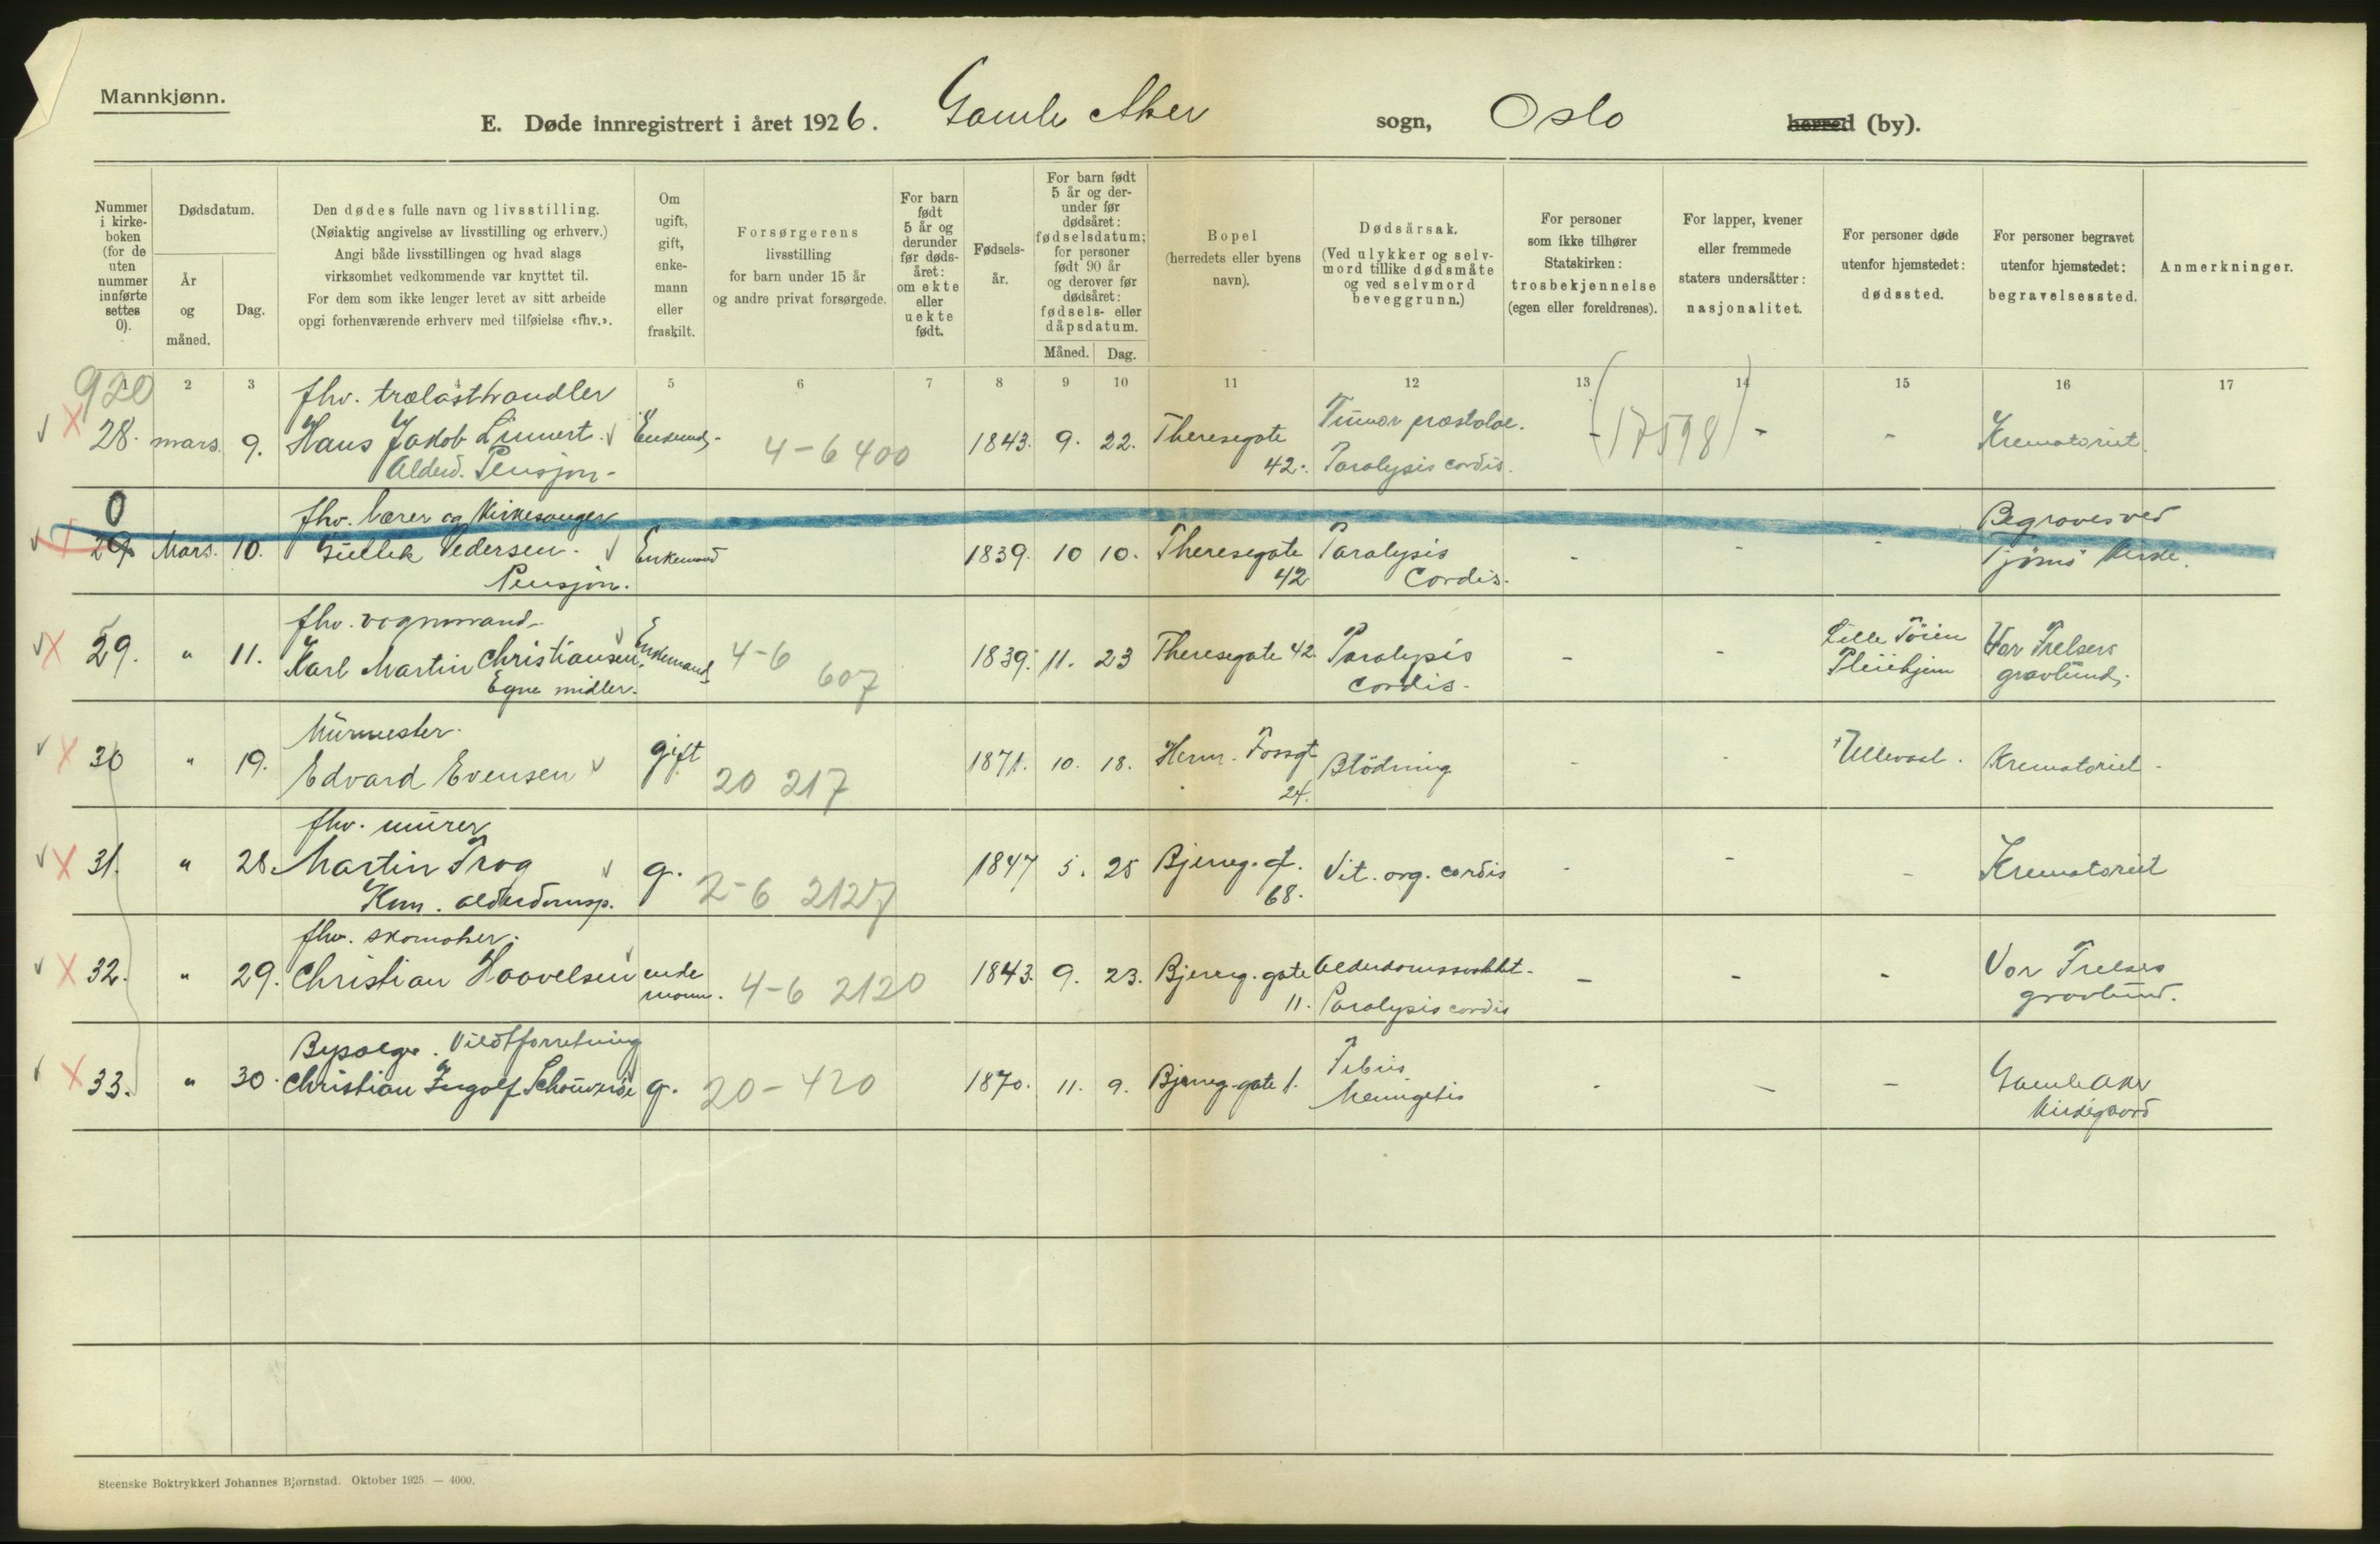 Mannkjønn.
E. Døde innregistrert i året 1926. Gamle Aker sogn, Oslo herred (by).
Nummer i kirke-boken (for de uten nummer innførte settes 0).
Dødsdatum.
År og måned.
Dag.
Den dødes fulle navn og livsstilling.
(Nøiaktig angivelse av livsstilling og erhverv.)
Angi både livsstillingen og hvad slags
virksomhet vedkommende var knyttet til.
For dem som ikke lenger levet av sitt arbeide
opgi forhenværende erhverv med tilføielse «fhv.».
Om ugift, gift, enke-mann eller fraskilt.
Forsørgerens
livsstilling
for barn under 15 år
og andre privat forsørgede.
For barn født 5 år og derunder før døds-året: om ekte eller uekte født.
Fødsels-år.
For barn født 5 år og der-under før dødsåret: fødselsdatum; for personer født 90 år og derover før dødsåret: fødsels- eller dåpsdatum.
Måned. Dag.
Bopel
(herredets eller byens
navn).
Dødsårsak.
(Ved ulykker og selv-
mord tillike dødsmåte
og ved selvmord
beveggrunn.)
For personer
som ikke tilhører
Statskirken:
trosbekjennelse
(egen eller foreldrenes).
For lapper, kvener
eller fremmede
staters undersåtter:
nasjonalitet.
For personer døde
utenfor hjemstedet:
dødssted.
For personer begravet
utenfor hjemstedet:
begravelsessted.
Anmerkninger.
1 2 3 4 5 6 7 8 9 10 11 12 13 14 15 16 17
920
fhv. trælasthandler
28. mars. 9. Hans Jakob Linnert. 4-6 400 1843. 9. 22. Theresegate 42. Tumor prostatae. (17598) Krematoriet.
Alderd. Pensjon - Paralysis cordis.
0
fhv. lærer og Kirkesanger Begraves ved
29. Mars. 10. Gullik Pedersen. Enkemand 1839. 10 10. Theresegate 42 Paralysis Cordis. - - - Tjømø Kirke.
Pensjon.
fhv. vognmand.
29. " 11. Karl Martin Christiansen. Enkemand 4-6 607 1839. 11. 23 Theresegate 42. Paralysis cordis. - - Lille Tøien Pleiehjem Vor Frelsers gravlund.
Egne midler.
Murmester.
30 " 19. Edvard Evensen gift 20 217 1871. 10. 18. Herm. Fossgt 24. Blødning - - Ullevaal. Krematoriet -
fhv. murer
31. " 28. Martin Trog g. 2-6 2127 1847 5. 25 Bjerreg. gt. 68. Vit. org. cordis - - - Krematoriet
Kom. alderdomsp.
fhv. skomaker.
32. " 29. Christian Haavelsen enke mann. 4-6 2120 1843. 9. 23. Bjerreg. gate 11. Alderdomssvakht. - - - Vor Frelsers gravlund.
Paralysis cordis
Vildtforretning
33. " 30. Christian Ingolf g. 20-420 1870. 11. 9. Bjerreg. gate 1. Febris Meningitis - - - Gamle Aker Kirkegaard
Steenske Boktrykkeri Johannes Bjørnstad. Oktober 1925. — 4000.